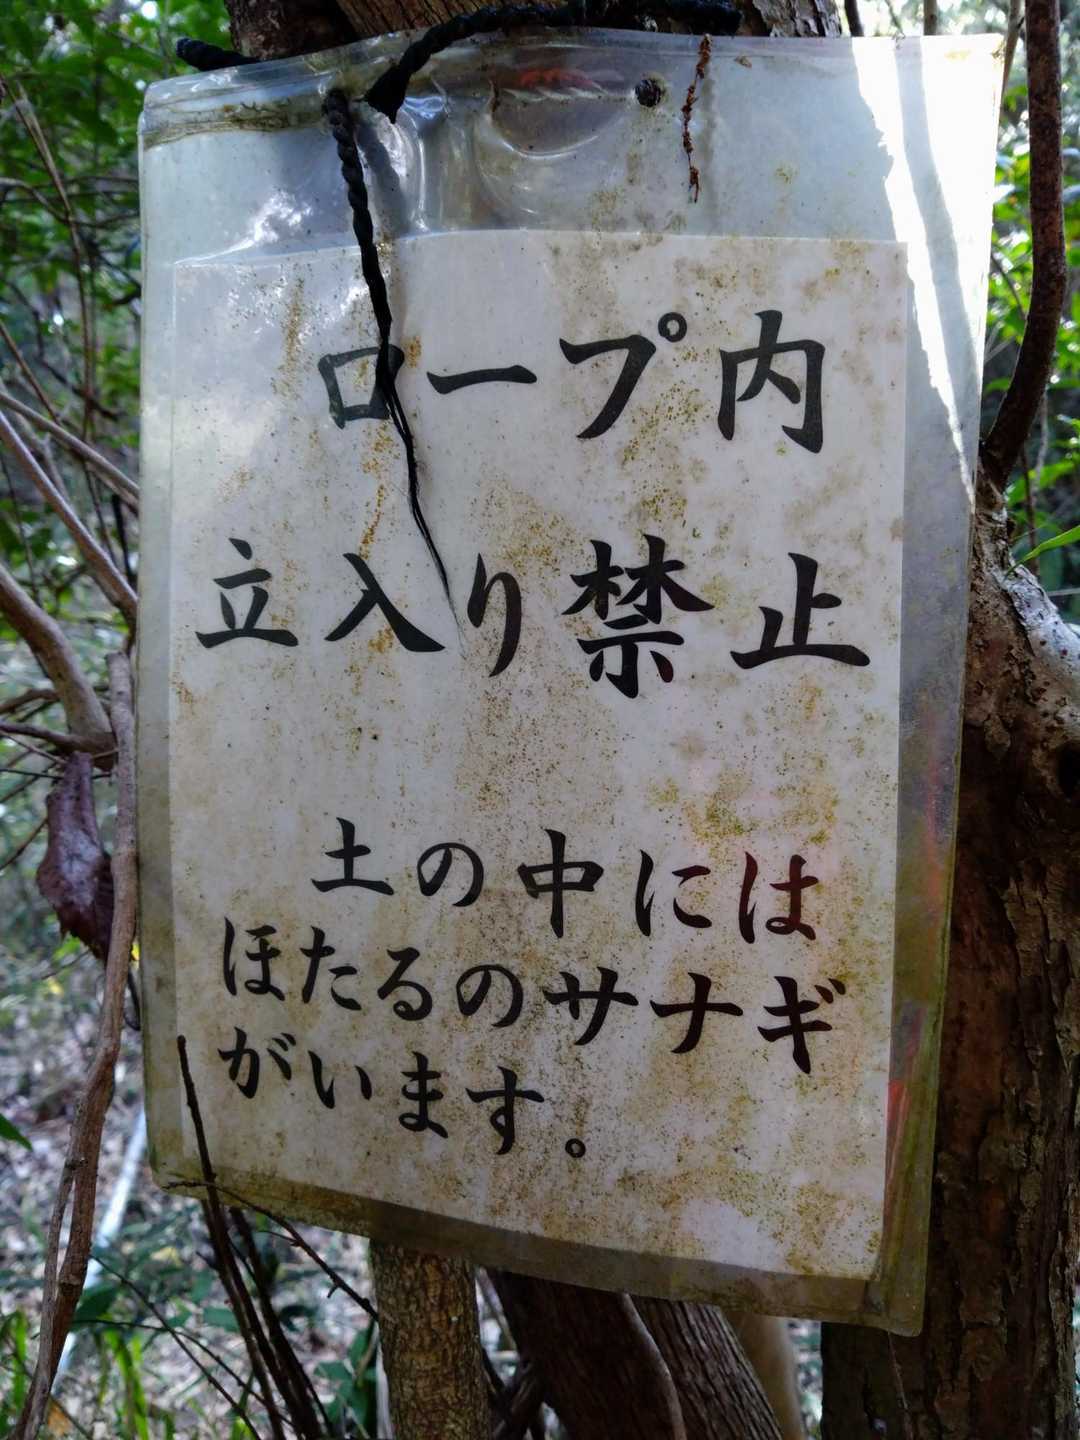 ロープ内
立入り禁止
土の中には
ほたるのサナギ
がいます。